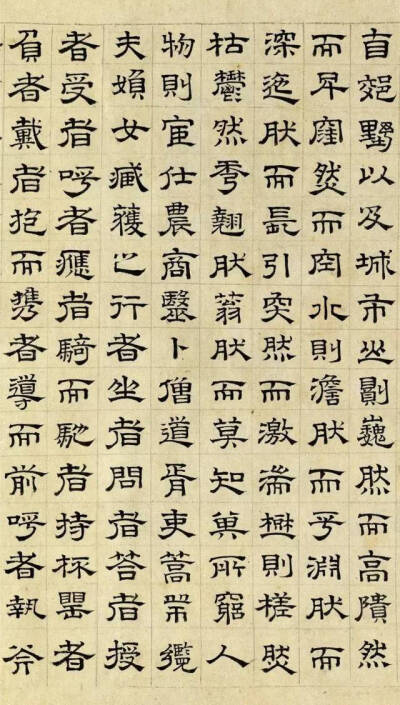 自郊野以及城市山則巍然而高隤然
而卑窪然而空水則澹然而平淵然而
深迤然而長引突然而激湍樹則槎然
枯鬱然秀翹然蓊然而莫知其所窮人
物則官仕農商醫卜僧道胥吏篙帥纜
夫婦女臧獲之行者坐者問者答者授
者受者呼者應者騎而馳者持杯罌者
負者戴者抱而攜者導而前呼者執斧